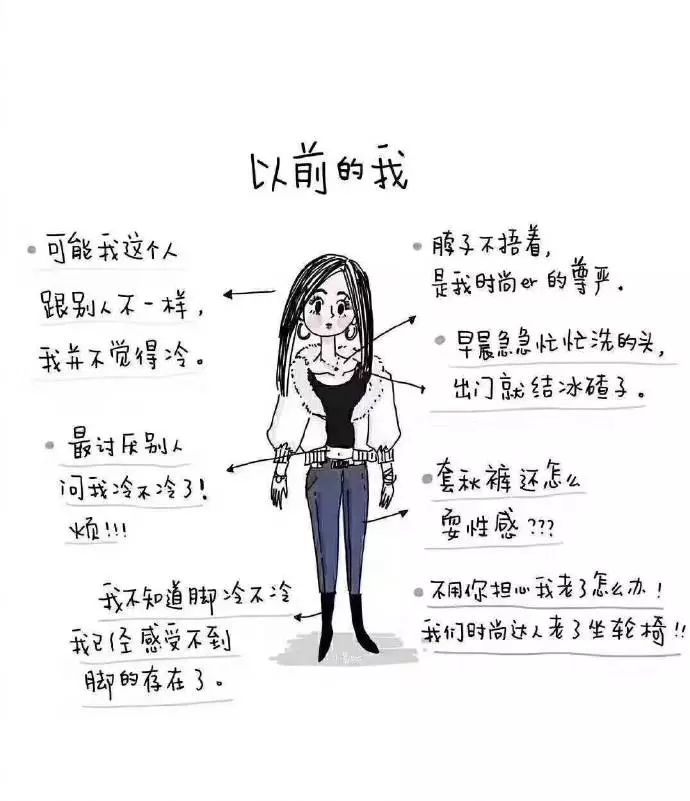 以前的我
可能我这个人
跟别人不一样，
我并不觉得冷。
最讨厌别人
问我冷不冷了！
烦!!!
我不知道脚冷不冷
我已经感受不到
脚的存在了。
脖子不捂着，
是我时尚er的尊严。
早晨急急忙忙洗的头，
出门就结冰碴子。
套秋裤还怎么
耍性感???
不用你担心我老了怎么办！
我们时尚达人老了坐轮椅!!